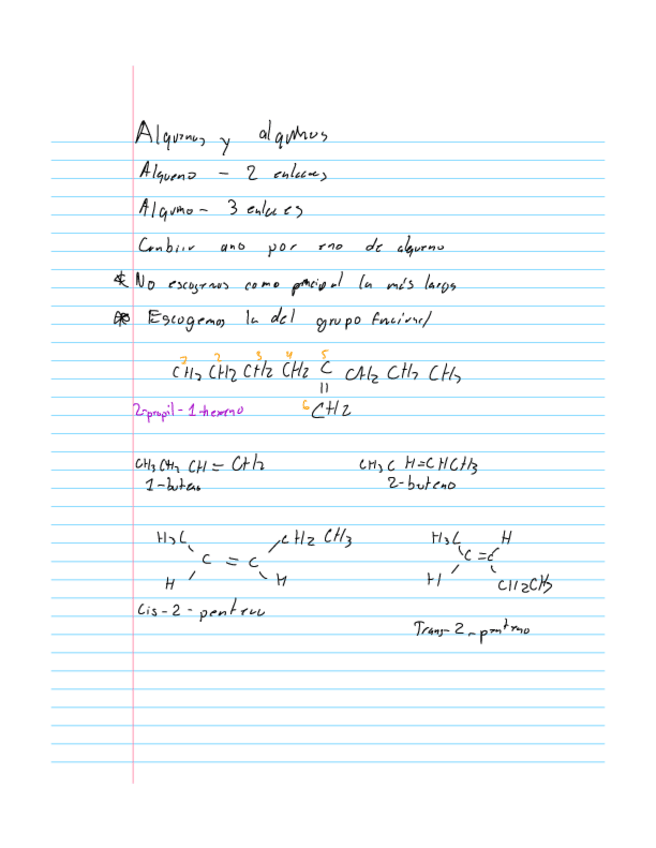 Alquenos y alquinos
Alqueno - 2 enlaces
Alquino - 3 enlaces
Cambiar ano por eno de alqueno
* No escogemos como principal la más larga
* Escogemos la del grupo funcional
1 2 3 4 5
CH3 CH2 CH2 CH2 C CH2 CH2 CH3
||
2-propil-1-hexeno 6 CH2
CH3 CH2 CH = CH2 CH3C H=CHCH3
1-buteno 2-buteno
H3C CH2 CH3 H3C H
C = C C = C
H H H CH2CH3
Cis-2-penteno
Trans-2-penteno